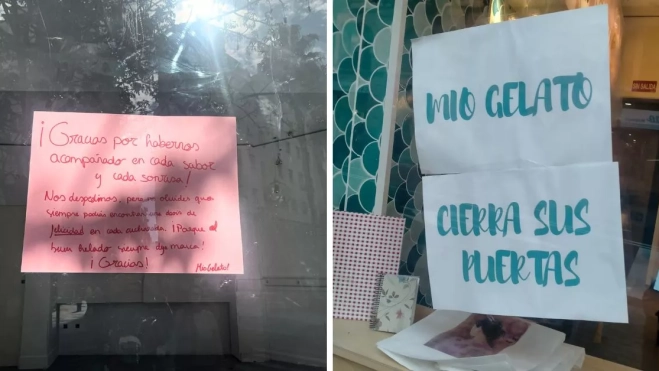 ¡Gracias por habernos
acompañado en cada sabor
y cada sonrisa!
Nos despedimos, pero no olvides que
siempre podrás encontrar una dosis de
felicidad en cada ¡Porque el
buen helado siempre deja marca!
¡Gracias!
MioGelato!
MIO GELATO
CIERRA SUS
PUERTAS
SIN SALIDA